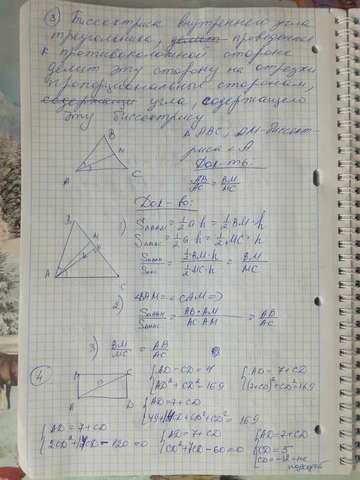 ③ Биссектриса внутреннего угла
треугольника, проведённая
к противоположной стороне
делит эту сторону на отрезки
пропорциональные сторонам,
угла, содержащего
эту биссектрису
B
M
A
C
△ABC, AM-биссект-
риса ∠A
Док-ть:
AB/AC = BM/MC
Док-во:
B
M
A
C
1) = 1/2 a·h = 1/2 BM·h
= 1/2 a·h = 1/2 MC·h
= (1/2 BM·h)/(1/2 MC·h) = BM/MC
2) = ∠CAM ⇒
= (AB·AM)/(AC·AM) = AB/AC
3) BM/MC = AB/AC
④
D
{AD-CD=7
{AD²+CD²=169
{AD=7+CD
{(7+CD)²+CD²=169
{AD=7+CD
=169
{AD=7+CD
{2CD²+14CD-120=0
{AD=7+CD
{CD²+7CD-60=0
{AD=7+CD
{CD=5
{CD=-12-не